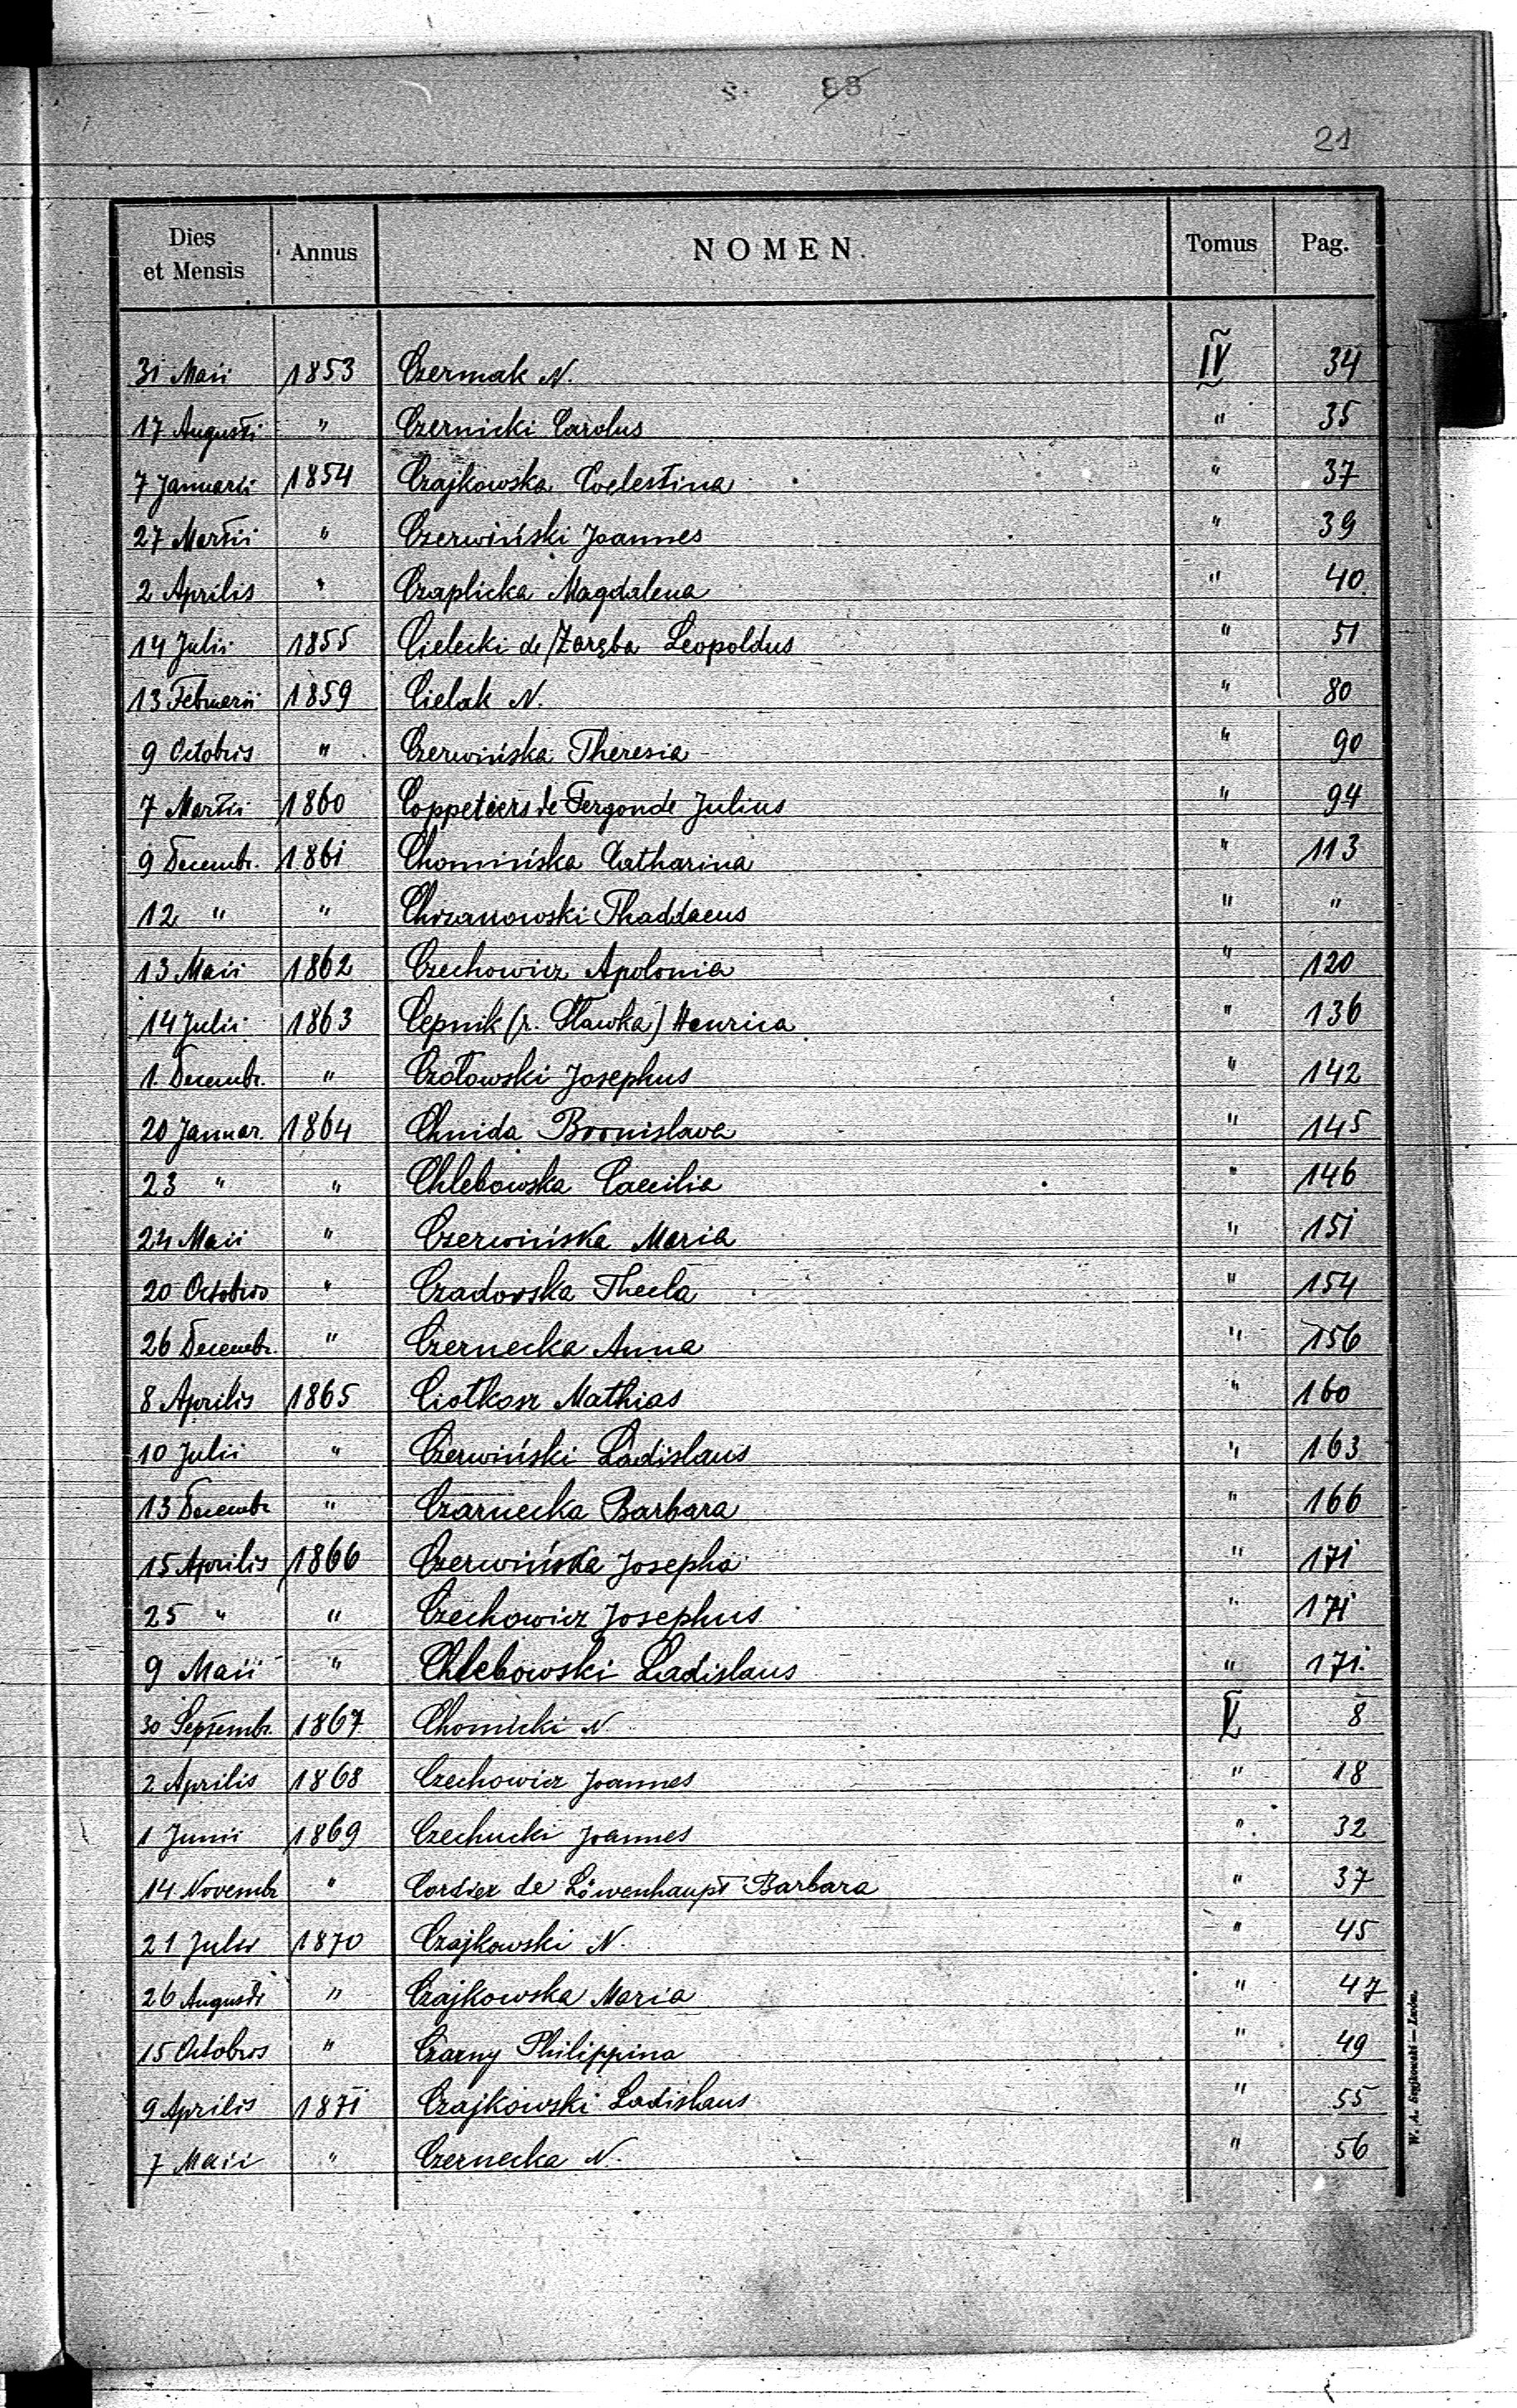 s. 88
21
Dies et Mensis Annus NOMEN. Tomus Pag.
31 Maii 1853 Czermak N. IV 34
17 Augusti " Czernicki Carolus " 35
7 Januarii 1854 Czajkowska Coelestina " 37
27 Martii " Czerwiński Joannes " 39
2 Aprilis " Czaplicka Magdalena " 40
14 Julii 1855 Cielecki de Zaręba Leopoldus " 51
13 Februarii 1859 Cielak N. " 80
9 Octobris " Czerwińska Theresia " 90
7 Martii 1860 Coppetiers de Tergonde Julius " 94
9 Decembr. 1861 Chomińska Catharina " 113
12 " " Chrzanowski Thaddaeus " "
13 Maii 1862 Czechowicz Apolonia " 120
14 Julii 1863 Cepnik (r. Sławka) Henrica " 136
1. Decembr. " Czołowski Josephus " 142
20 Januar. 1864 Chnida Bronislava " 145
23 " " Chlebowska Caecilia " 146
24 Maii " Czerwińska Maria " 151
20 Octobris " Czadorska Thecla " 154
26 Decembr. " Czernecka Anna " 156
8 Aprilis 1865 Ciotkosz Mathias " 160
10 Julii " Czerwiński Ladislaus " 163
13 Decembr " Czarnecka Barbara " 166
15 Aprilis 1866 Czerwińska Josepha " 171
25 " " Czechowicz Josephus " 171
9 Maii " Chlebowski Ladislaus " 171.
30 Septembr. 1867 Chomicki N V 8
2 Aprilis 1868 Czechowicz Joannes " 18
1 Junii 1869 Czechucki Joannes " 32
14 Novembr " Cordier de Löwenhaupt Barbara " 37
21 Julii 1870 Czajkowski N. " 45
26 Augusti " Czajkowska Maria " 47
15 Octobris " Czarny Philippina " 49
9 Aprilis 1871 Czajkowski Ladislaus " 55
7 Maii " Czernecka N. " 56